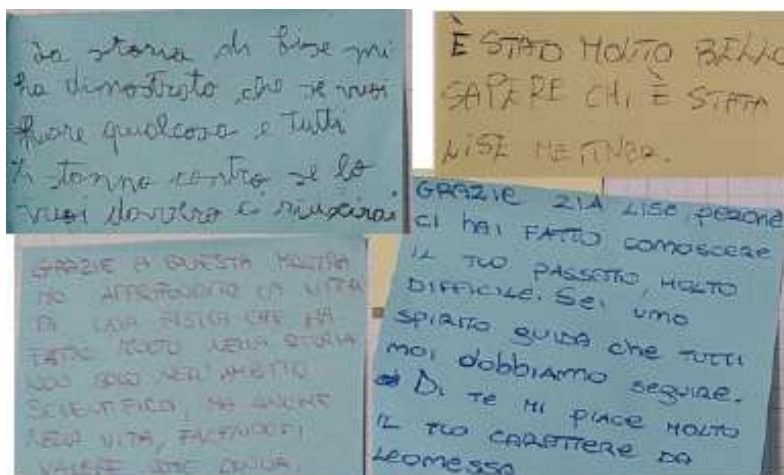 La storia di Lise mi
ha dimostrato che se vuoi
fare qualcosa e tutti
ti stanno contro se lo
vuoi davvero ci riuscirai
È STATO MOLTO BELLO
SAPERE CHI È STATA
LISE MEITNER.
GRAZIE A QUESTA MOSTRA
HO APPROFONDITO LA VITA
DI UNA FISICA CHE HA
FATTO MOLTO NELLA STORIA
NON SOLO NELL'AMBITO
SCIENTIFICO, MA ANCHE
NELLA VITA, FACENDOSI
VALERE COME DONNA.
GRAZIE ZIA LISE PERCHÈ
CI HAI FATTO CONOSCERE
IL TUO PASSATO, MOLTO
DIFFICILE. SEI UNO
SPIRITO GUIDA CHE TUTTI
NOI dobbiamo seguire.
DI TE MI PIACE MOLTO
IL TUO CARATTERE DA
LEONESSA